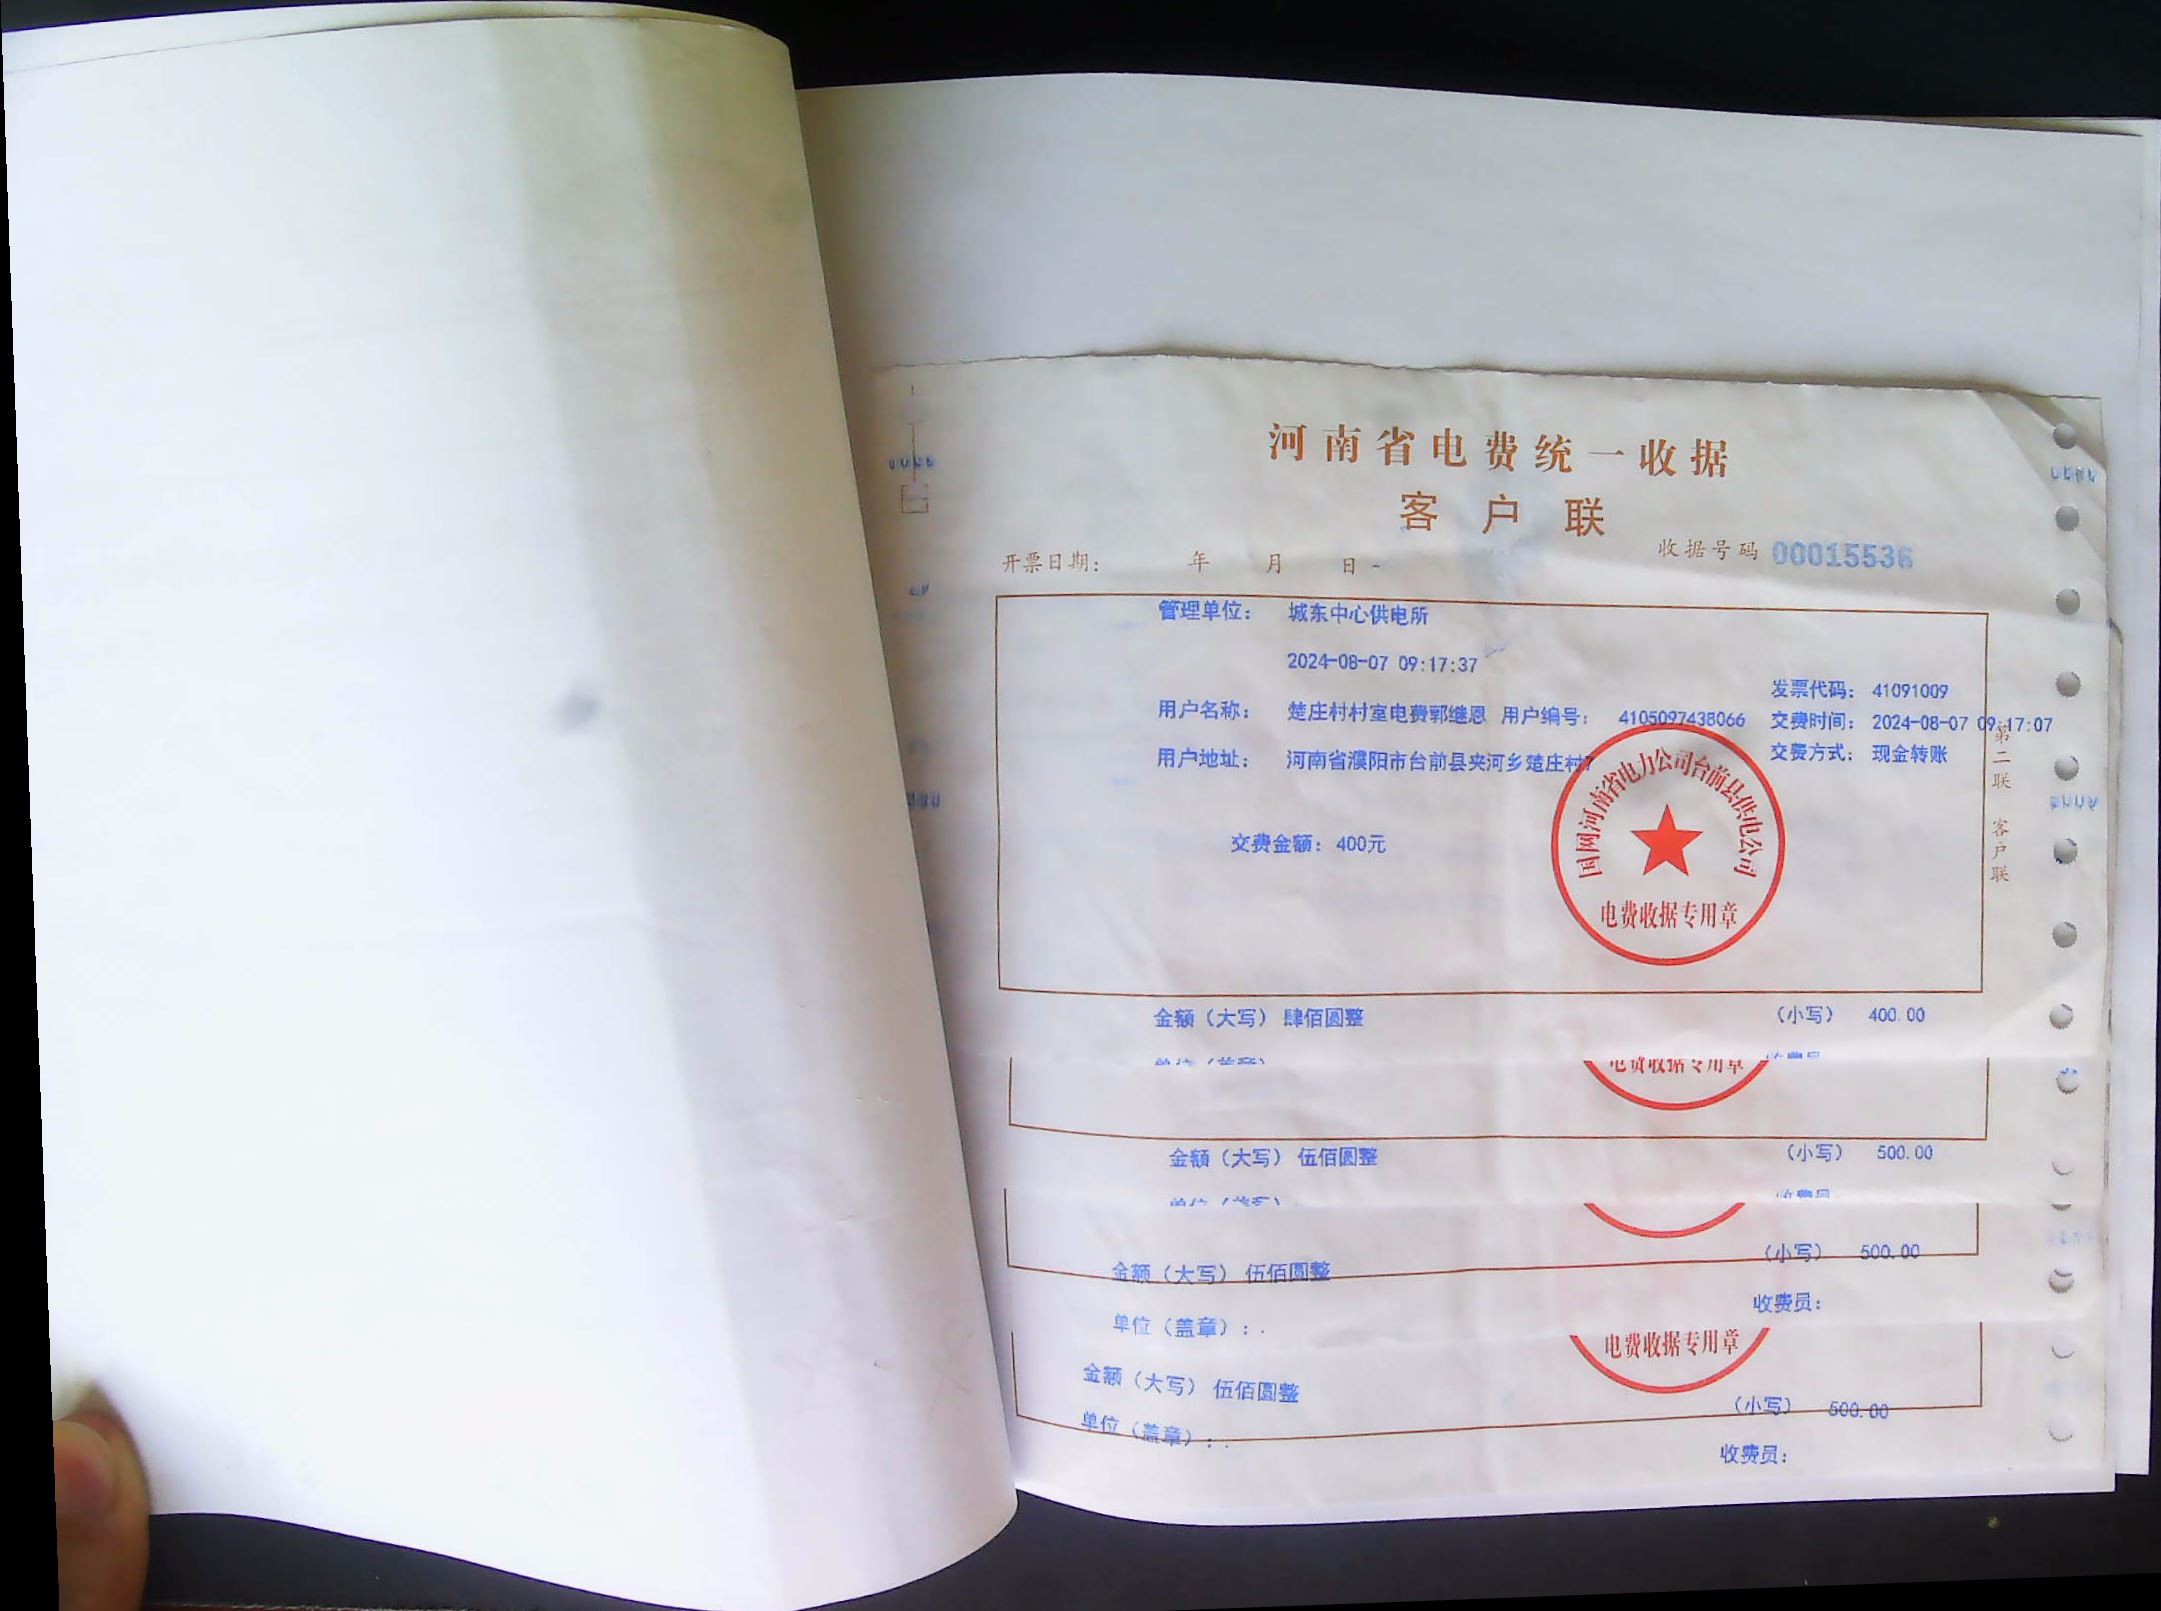 河南省电费统一收据
客户联
开票日期： 年 月 日
收据号码 00015536
管理单位： 城东中心供电所
2024-08-07 09:17:37
发票代码： 41091009
用户名称： 楚庄村村室电费郭继恩 用户编号： 4105097438066 交费时间： 2024-08-07 09:17:07
用户地址： 河南省濮阳市台前县夹河乡楚庄村7 交费方式： 现金转账
国网河南省电力公司台前县供电公司
电费收据专用章
第二联 客户联
交费金额：400元
金额（大写） 肆佰圆整 （小写） 400.00
单位（盖章） 收费员
电费收据专用章
金额（大写） 伍佰圆整 （小写） 500.00
单位（盖章） 收费员
金额（大写） 伍佰圆整 （小写） 500.00
单位（盖章）： 收费员：
电费收据专用章
金额（大写） 伍佰圆整 （小写） 500.00
单位（盖章）： 收费员：